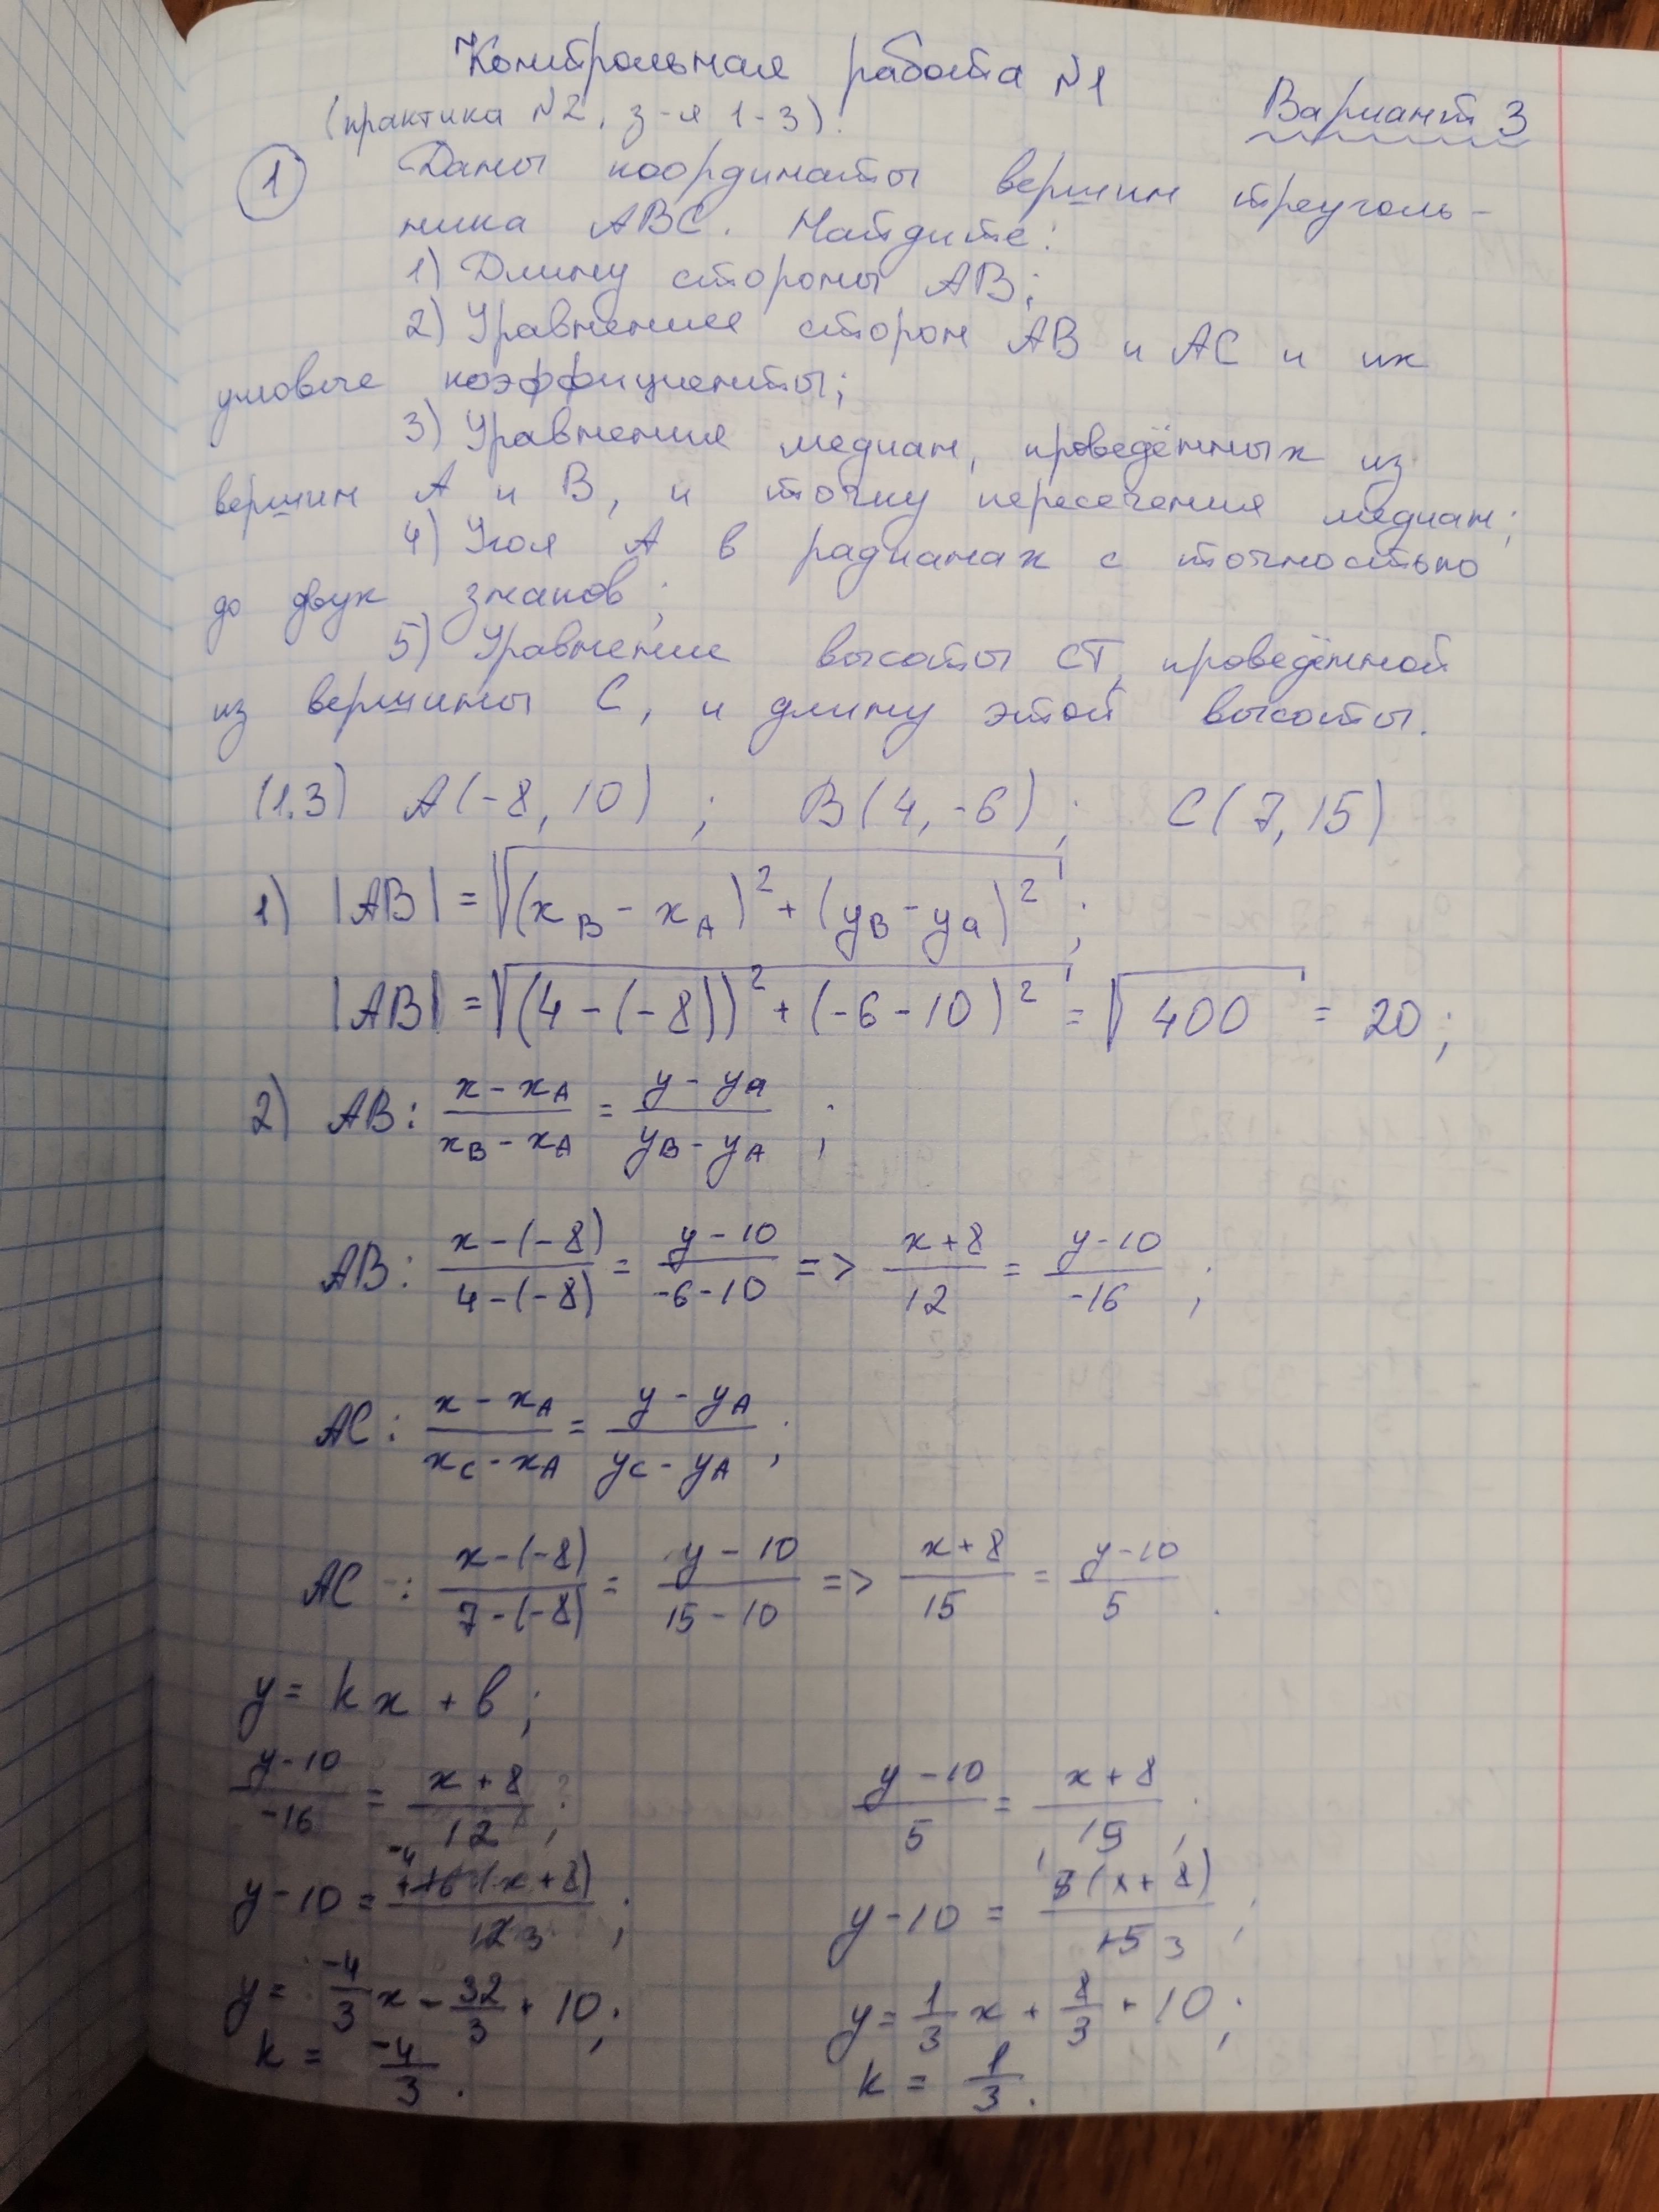 Контрольная работа №1
(практика №2, з-я 1-3).
Вариант 3
1 Даны координаты вершин треуголь-
ника ABC. Найдите:
1) Длину стороны AB;
2) Уравнения сторон AB и AC и их
угловые коэффициенты;
3) Уравнения медиан, проведённых из
вершин A и B, и точку пересечения медиан;
4) Угол A в радианах с точностью
до двух знаков;
5) Уравнение высоты CT, проведённой
из вершины C, и длину этой высоты.
(1.3) A(-8, 10) ; B(4, -6) ; C(7, 15)
1) |AB| = √((x_B - x_A)² + (y_B - y_a)²) ;
|AB| = √((4-(-8))² + (-6-10)²) = √400 = 20;
2) AB: (x - x_A)/(x_B - x_A) = (y - y_a)/(y_B - y_A) ;
AB: (x-(-8))/(4-(-8)) = (y-10)/(-6-10) => (x+8)/12 = (y-10)/-16 ;
AC: (x - x_A)/(x_C - x_A) = (y - y_A)/(y_C - y_A) ;
AC: (x-(-8))/(7-(-8)) = (y-10)/(15-10) => (x+8)/15 = (y-10)/5 .
y = kx + b ;
(y-10)/-16 = (x+8)/12 ; (y-10)/5 = (x+8)/15 ;
y-10 = -4(x+8)/3 ; y-10 = 1(x+8)/3 ;
y = -4/3 x - 32/3 + 10 ; y = 1/3 x + 8/3 + 10 ;
k = -4/3 . k = 1/3 .